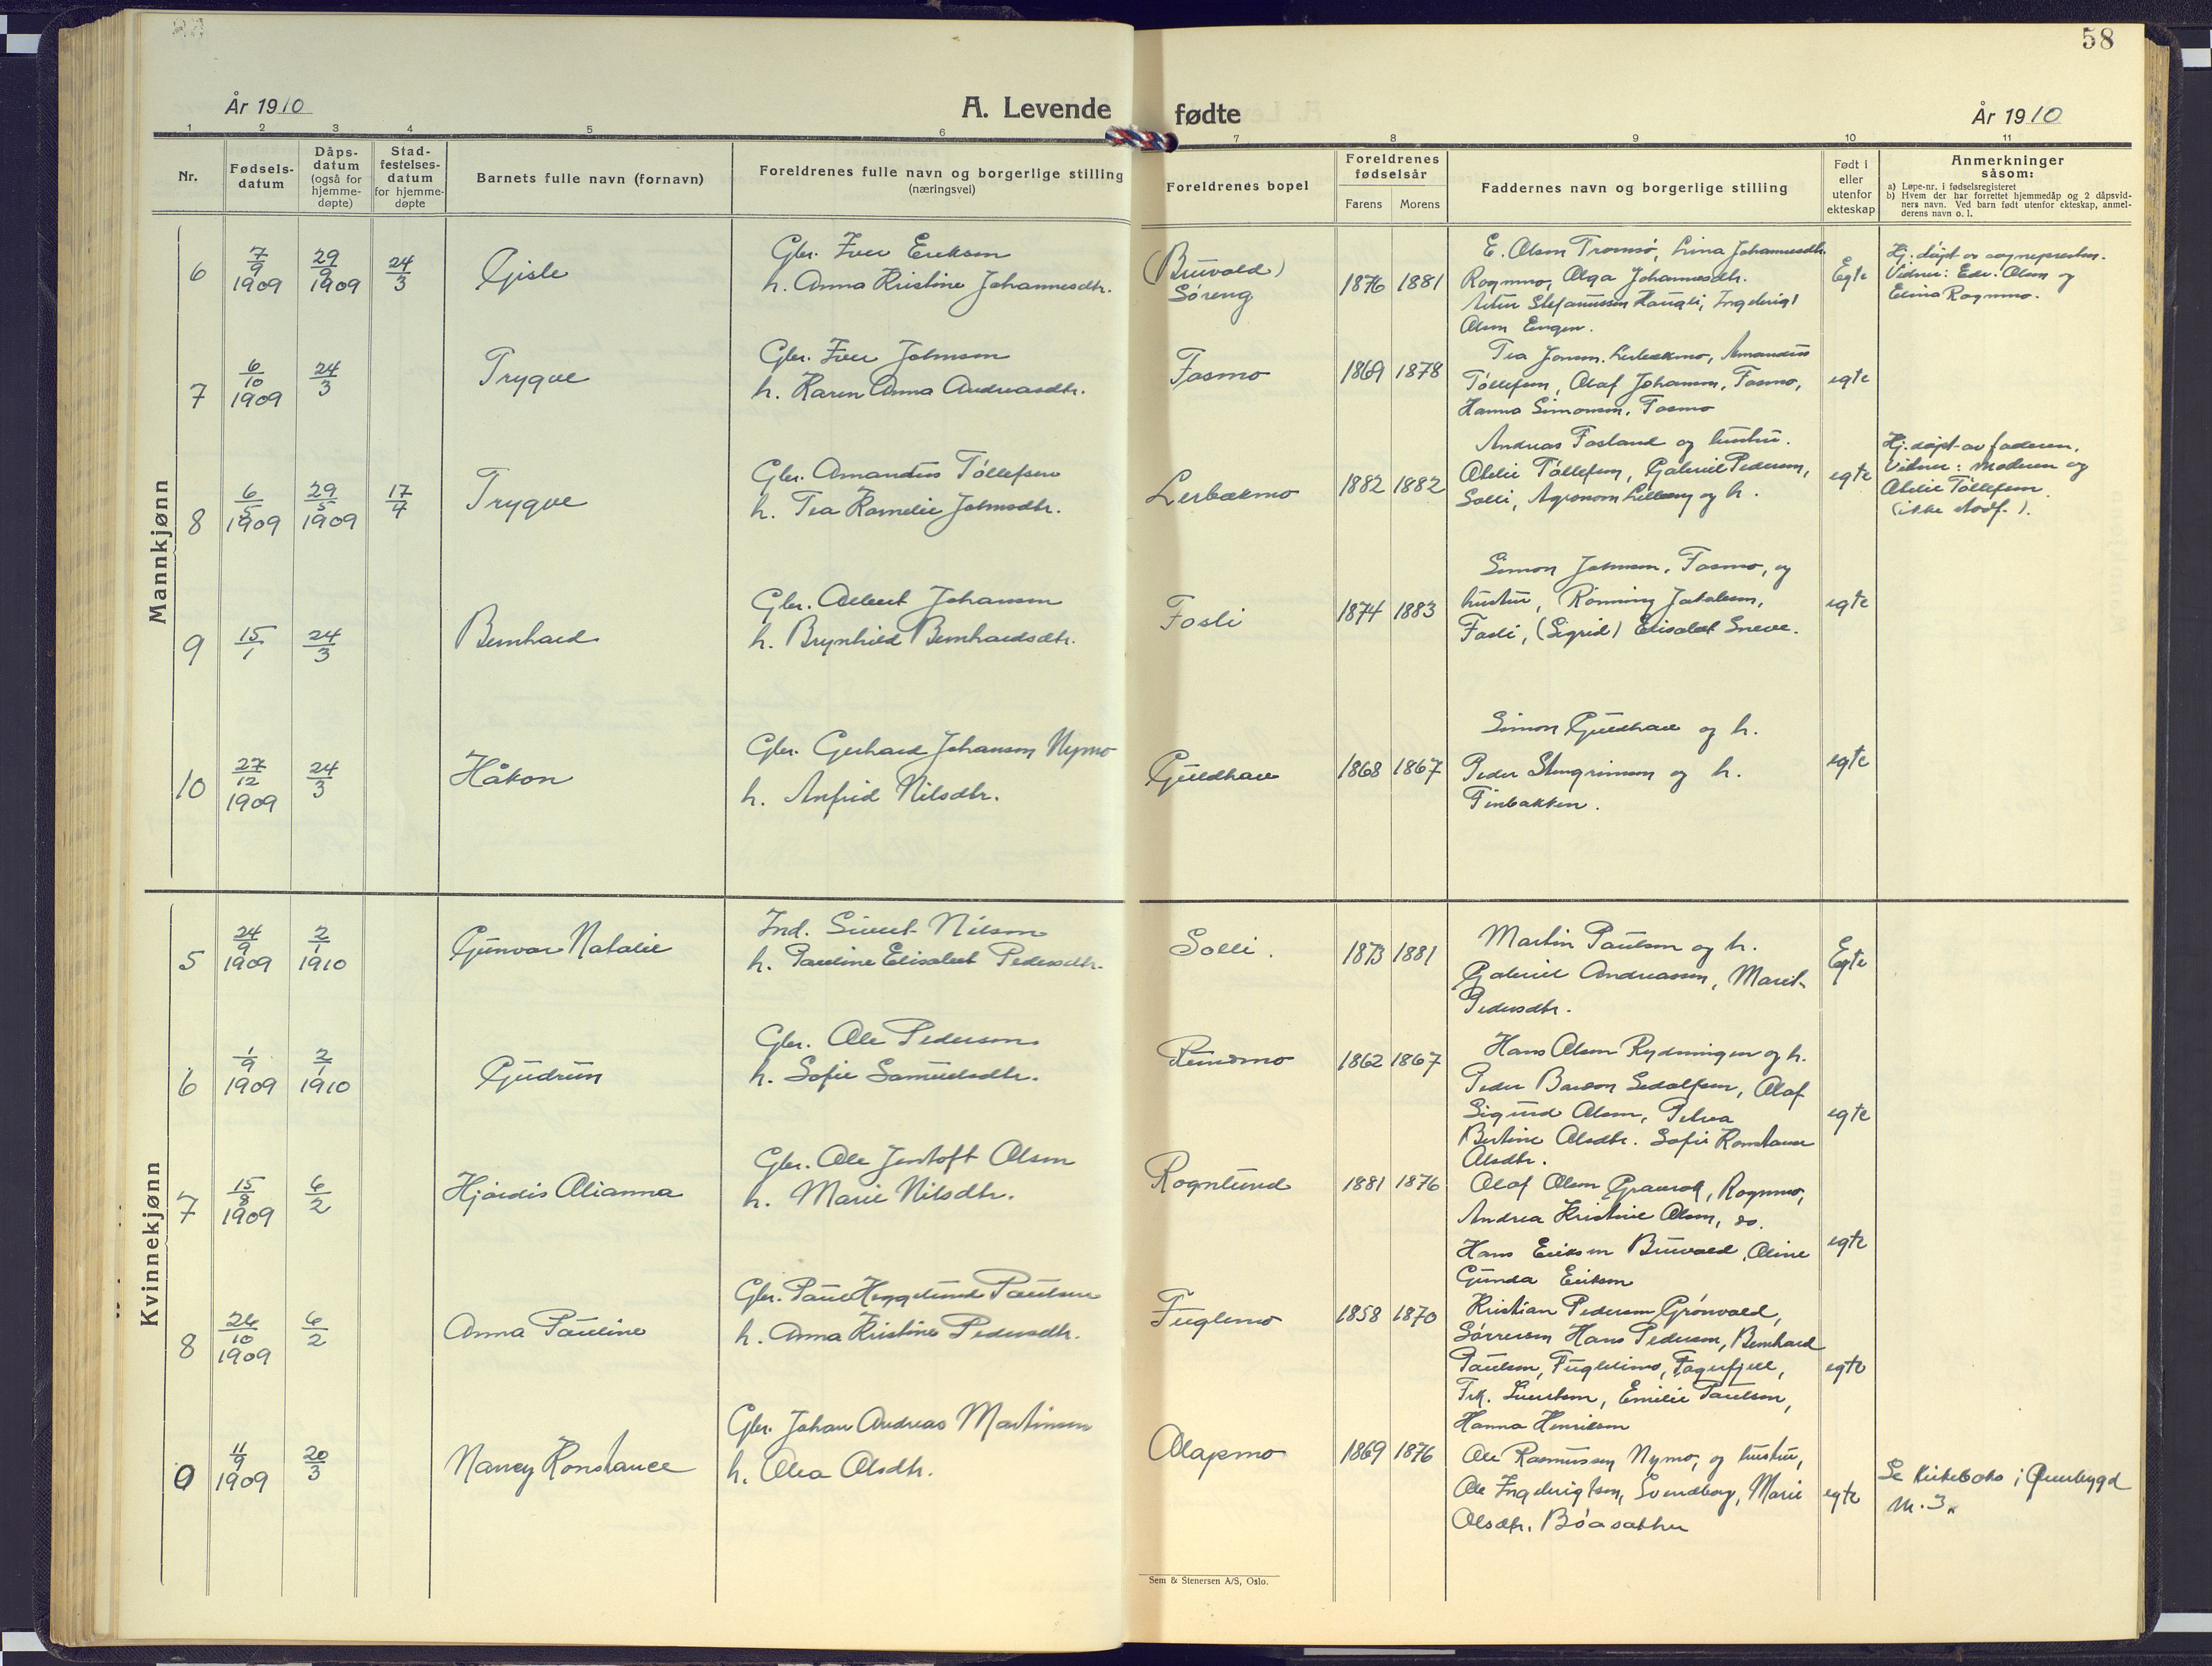 58
År 1910
A. Levende fødte
År 1910
1 2 3 4 5 6 7 8 9 10 11
Nr.
Fødsels-
datum
Dåps-
datum
(også for
hjemme-
døpte)
Stad-
festelses-
datum
for hjemme-
døpte
Barnets fulle navn (fornavn)
Foreldrenes fulle navn og borgerlige stilling
(næringsvei)
Foreldrenes bopel
Foreldrenes
fødselsår
Farens Morens
Faddernes navn og borgerlige stilling
Født i
eller
utenfor
ekteskap
Anmerkninger
såsom:
a) Løpe-nr. i fødselsregisteret
b) Hvem der har forrettet hjemmedåp og 2 dåpsvid-
ners navn. Ved barn født utenfor ekteskap, anmel-
derens navn o. l.
Mannkjønn
6 7/9 1909 29/9 1909 24/3 Gisle
Gbr. Iver Eriksen
h. Anna Kristine Johannesdtr.
(Bruvold)
Søreng
1876 1881
E. Olsen Tromsø, Lina Johannesdtr.
Rognmo, Olga Johannesdtr.
Stefanussen Haugli, Ingebrigt
Olsen Engen.
Egte
Hj. døpt av sognepresten.
Vidner: Edv. Olsen og
Elina Rognmo.
7 6/10 1909 24/3 Trygve
Gbr. Iver Johnsen
h. Karen Anna Andreasdtr.
Fosmo
1869 1878
Tea Jonsen, Lerbækmo, Amandus
Tøllefsen, Olaf Johansen, Fosmo,
Hanna Simonsen, Fosmo
egte
8 6/5 1909 29/5 1909 17/7 Trygve
Gbr. Amandus Tøllefsen
h. Tea Kornelie Johnsdtr.
Lerbækmo
1882 1882
Andreas Fosland og hustru.
Otelie Tøllefsen, Gabriel Pedersen,
Solli, Agronom Lilleeng og h.
egte
Hj. døpt av faderen,
Vidner: moderen og
Otelie Tøllefsen
(ikke stadf.).
9 15/1 24/3 Bernhard
Gbr. Albert Johansen
h. Brynhild Bernhardsdtr.
Fosli
1874 1883
Simon Johnsen, Fosmo, og
hustru, Rønning Jakobsen,
Fosli, (Sigrid) Elisabet Sneve.
egte
10 27/12 1909 24/3 Håkon
Gbr. Gerhard Johanson Nymo
h. Anfrid Nilsdtr.
Guldhav
1868 1867
Simon Guldhav og h.
Peder Stengrimsen og h.
Finbakken.
egte
Kvinnekjønn
5 24/9 1909 2/1 1910 Gunvor Natalie
Ind. Sivert Nilsen
h. Pauline Elisabet Pedersdtr.
Solli.
1873 1881
Martin Paulsen og h.
Gabriel Andreassen, Marit
Pedersdtr.
Egte
6 1/9 1909 2/1 1910 Gudrun
Gbr. Ole Pedersen
h. Sofie Samuelsdtr.
Rundmo
1862 1867
Hans Olsen Rydningen og h.
Peder Olaf
Sigurd Olsen, Petra
Bertine Olsdtr. Sofie Konstanse
Olsdtr.
egte
7 15/8 1909 6/2 Hjørdis Olianna
Gbr. Ole Jentoft Olsen
h. Marie Nilsdtr.
Rognlund
1881 1876
Olaf Olsen Rognmo,
Andrea Kristine Olsen, do.
Hans Eriksen Bruvold, Oline
Gunda Eriksen
egte
8 26/10 1909 6/2 Anna Pauline
Gbr. Paul Heggelund Paulsen
h. Anna Kristine Pedersdtr.
Fuglemo
1858 1870
Kristian Pedersen Grønvold,
Hans Pedersen, Bernhard
Paulsen, Fuglemo, Fagerfjell,
Frk. Emilie Paulsen,
Hanna Henriksen
egte
9 11/9 1909 20/3 Nancy Konstance
Gbr. Johan Andreas Martinsen
h. Olea Olsdtr.
Olapmo
1869 1876
Ole Rasmussen Nymo, og hustru,
Ole Ingebrigtsen, Svendborg, Marie
Olsdtr. Bøasæther
egte
Se Kirkeboka i Øverbygd
nr. 3.
Sem & Stenersen A/S, Oslo.